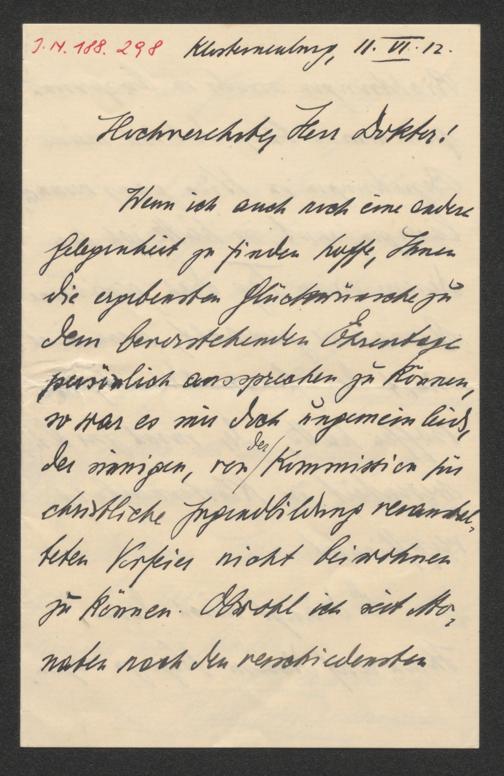 J.N. 188.298 Klosterneuburg, 11. VI. 12.
Hochverehrter Herr Doktor!
Wenn ich auch noch eine andere
Gelegenheit zu finden hoffe, Ihnen
die ergebensten Glückwünsche zu
dem bevorstehenden Ehrentage
persönlich aussprechen zu können,
so war es mir doch ungemein leid,
der innigen, von der Kommission für
christliche Jugendbildung veranstal-
teten Vorfeier nicht beiwohnen
zu können. Obwohl ich seit Mo-
naten nach den verschiedensten